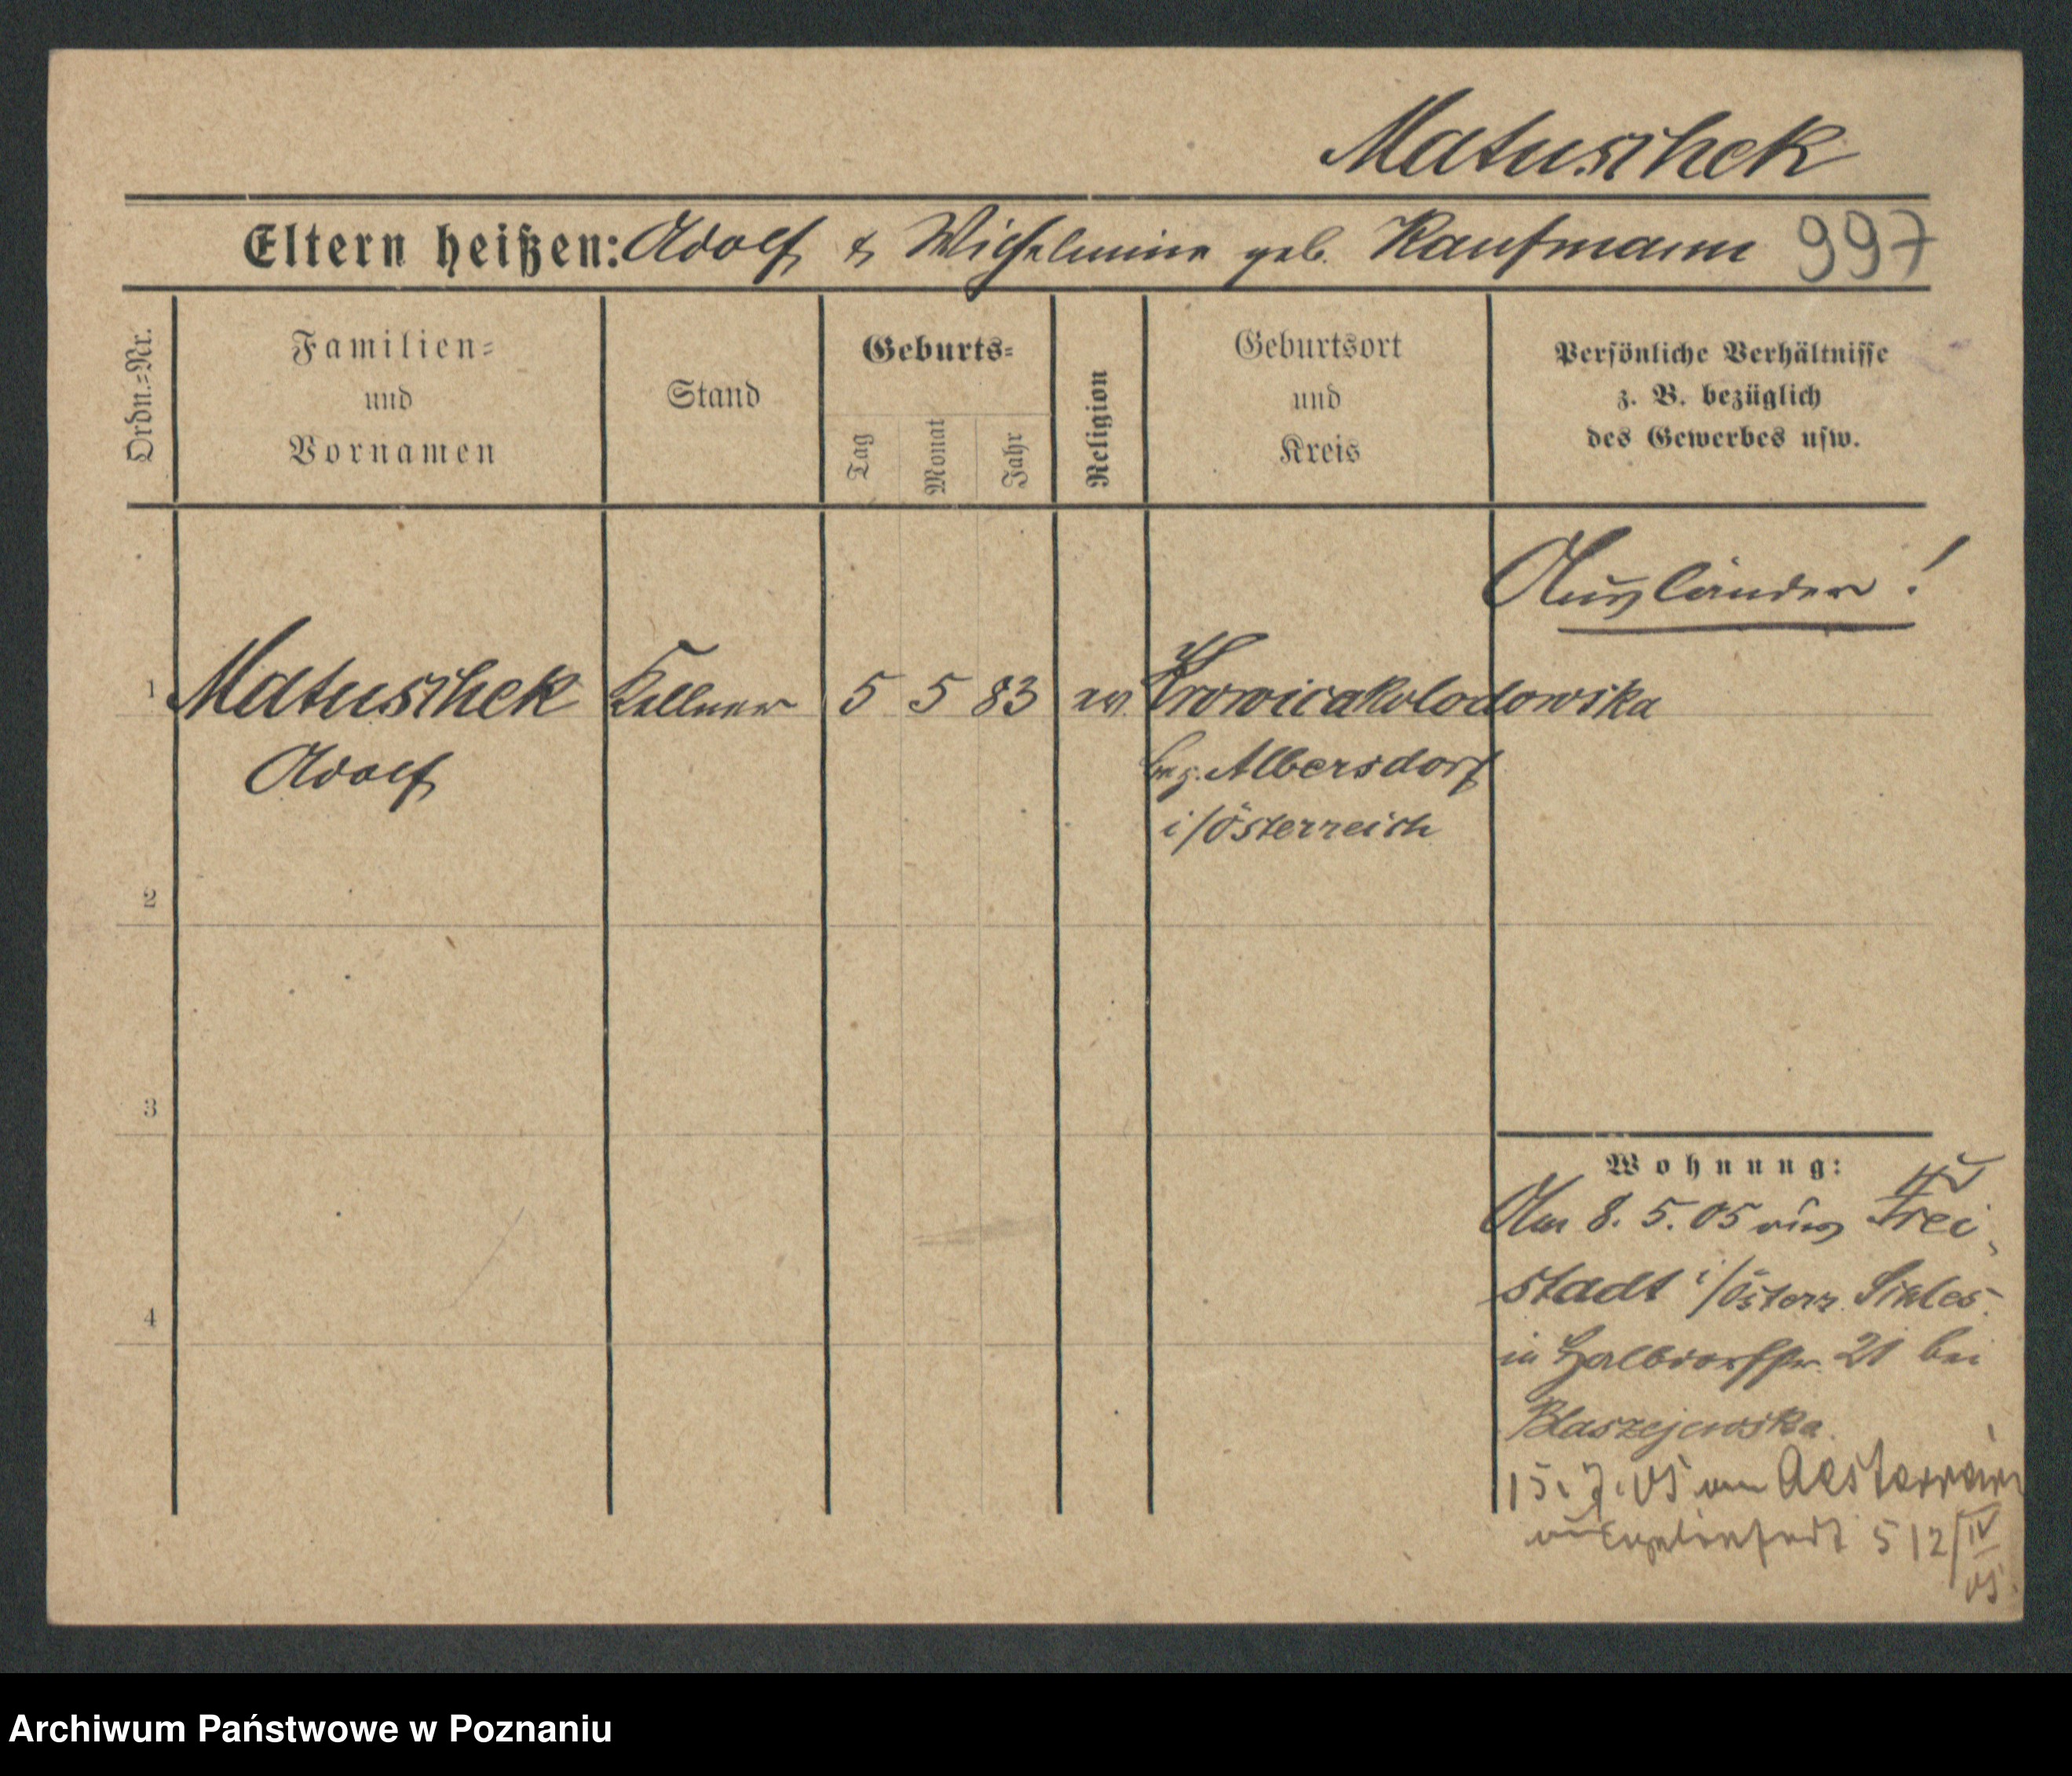 Matuschek
Eltern heißen: Adolf & Wilhelmine geb. Kaufmann 997
Ordn.=Nr.
Familien=
und
Vornamen
Stand
Geburts=
Tag
Monat
Jahr
Religion
Geburtsort
und
Kreis
Persönliche Verhältnisse
z. B. bezüglich
des Gewerbes usw.
Ausländer!
1 Matuschek Kellner 5 5 83 ev. Krowicakolodowska
Adolf bez. Albersdorf
i/Österreich
2
3
4
Wohnung:
Am 8. 5. 05 aus Frei
stadt i/Österr. Schles.
in Halbdorfstr. 21 bei
Blaszejewska.
15. 7. 05
512/IV
05.